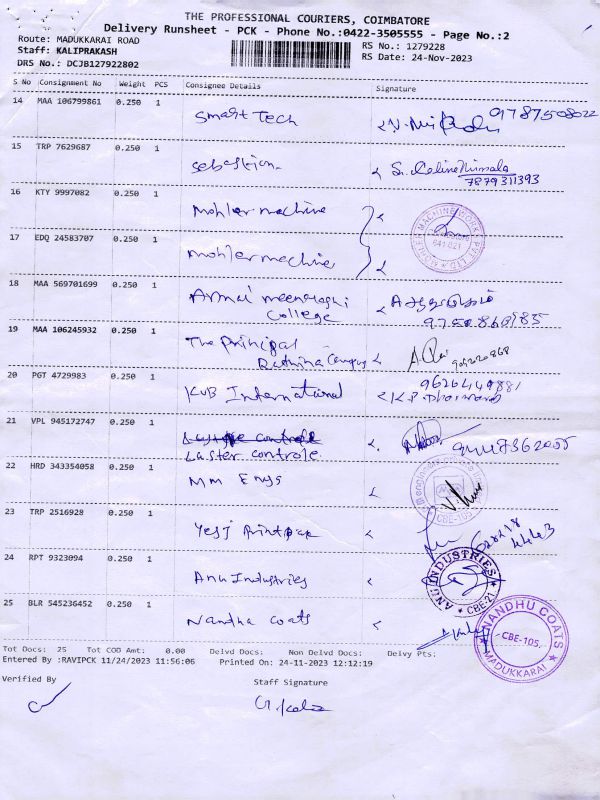 THE PROFESSIONAL COURIERS, COIMBATORE
Delivery Runsheet - PCK - Phone No.:0422-3505555 - Page No.:2
Route: MADUKKARAI ROAD
RS No.: 1279228
Staff: KALIPRAKASH
RS Date: 24-Nov-2023
DRS No.: DCJB127922802
S No Consignment No Weight PCS Consignee Details Signature
14 MAA 106799861 0.250 1 Smart Tech 9787508022
15 TRP 7629687 0.250 1 Sebastian Sr. Celine Nirmala
7879311393
16 KTY 9997082 0.250 1 Mohler machine
MOHLER MACHINE WORK PVT LTD
641 021
17 EDQ 24583707 0.250 1 Mohler machine
18 MAA 569701699 0.250 1 Annai meenakshi
College
19 MAA 106245932 0.250 1 The Principal
Rathina Campus
20 PGT 4729983 0.250 1 KVB International 9626449881
21 VPL 945172747 0.250 1
Laster controle
22 HRD 343354058 0.250 1 MM Engs
CBE-105
23 TRP 2516928 0.250 1 Yesj Printpack
24 RPT 9323094 0.250 1 Anu Industries
ANU INDUSTRIES
CBE-21
25 BLR 545236452 0.250 1 Nandha Coats
NANDHU COATS
CBE-105.
MADUKKARAI
Tot Docs: 25 Tot COD Amt: 0.00 Delvd Docs: Non Delvd Docs: Delvy Pts:
Entered By :RAVIPCK 11/24/2023 11:56:06 Printed On: 24-11-2023 12:12:19
Verified By Staff Signature